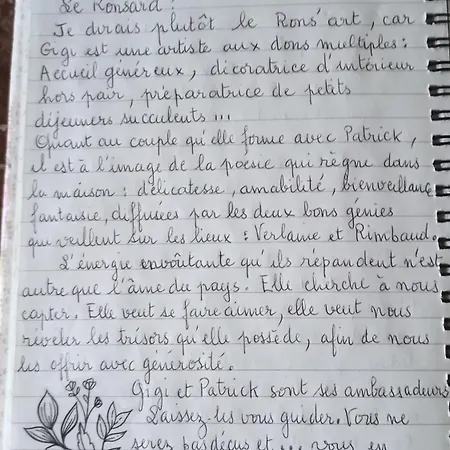 Le Ronsard !
Je dirais plutôt le Rons'art, car
Gigi est une artiste aux dons multiples :
Accueil généreux, décoratrice d'intérieur
hors pair, préparatrice de petits
déjeuners succulents ...
Quant au couple qu'elle forme avec Patrick,
il est à l'image de la poésie qui règne dans
la maison : délicatesse, amabilité, bienveillance
fantaisie, diffusées par les deux bons génies
qui veillent sur les lieux : Verlaine et Rimbaud.
L'énergie envoûtante qu'ils répandent n'est
autre que l'âme du pays. Elle cherche à nous
capter. Elle veut se faire aimer, elle veut nous
révéler les trésors qu'elle possède, afin de nous
les offrir avec générosité.
Gigi et Patrick sont ses ambassadeurs
Laissez-les vous guider. Vous ne
serez pas déçus et ... vous en